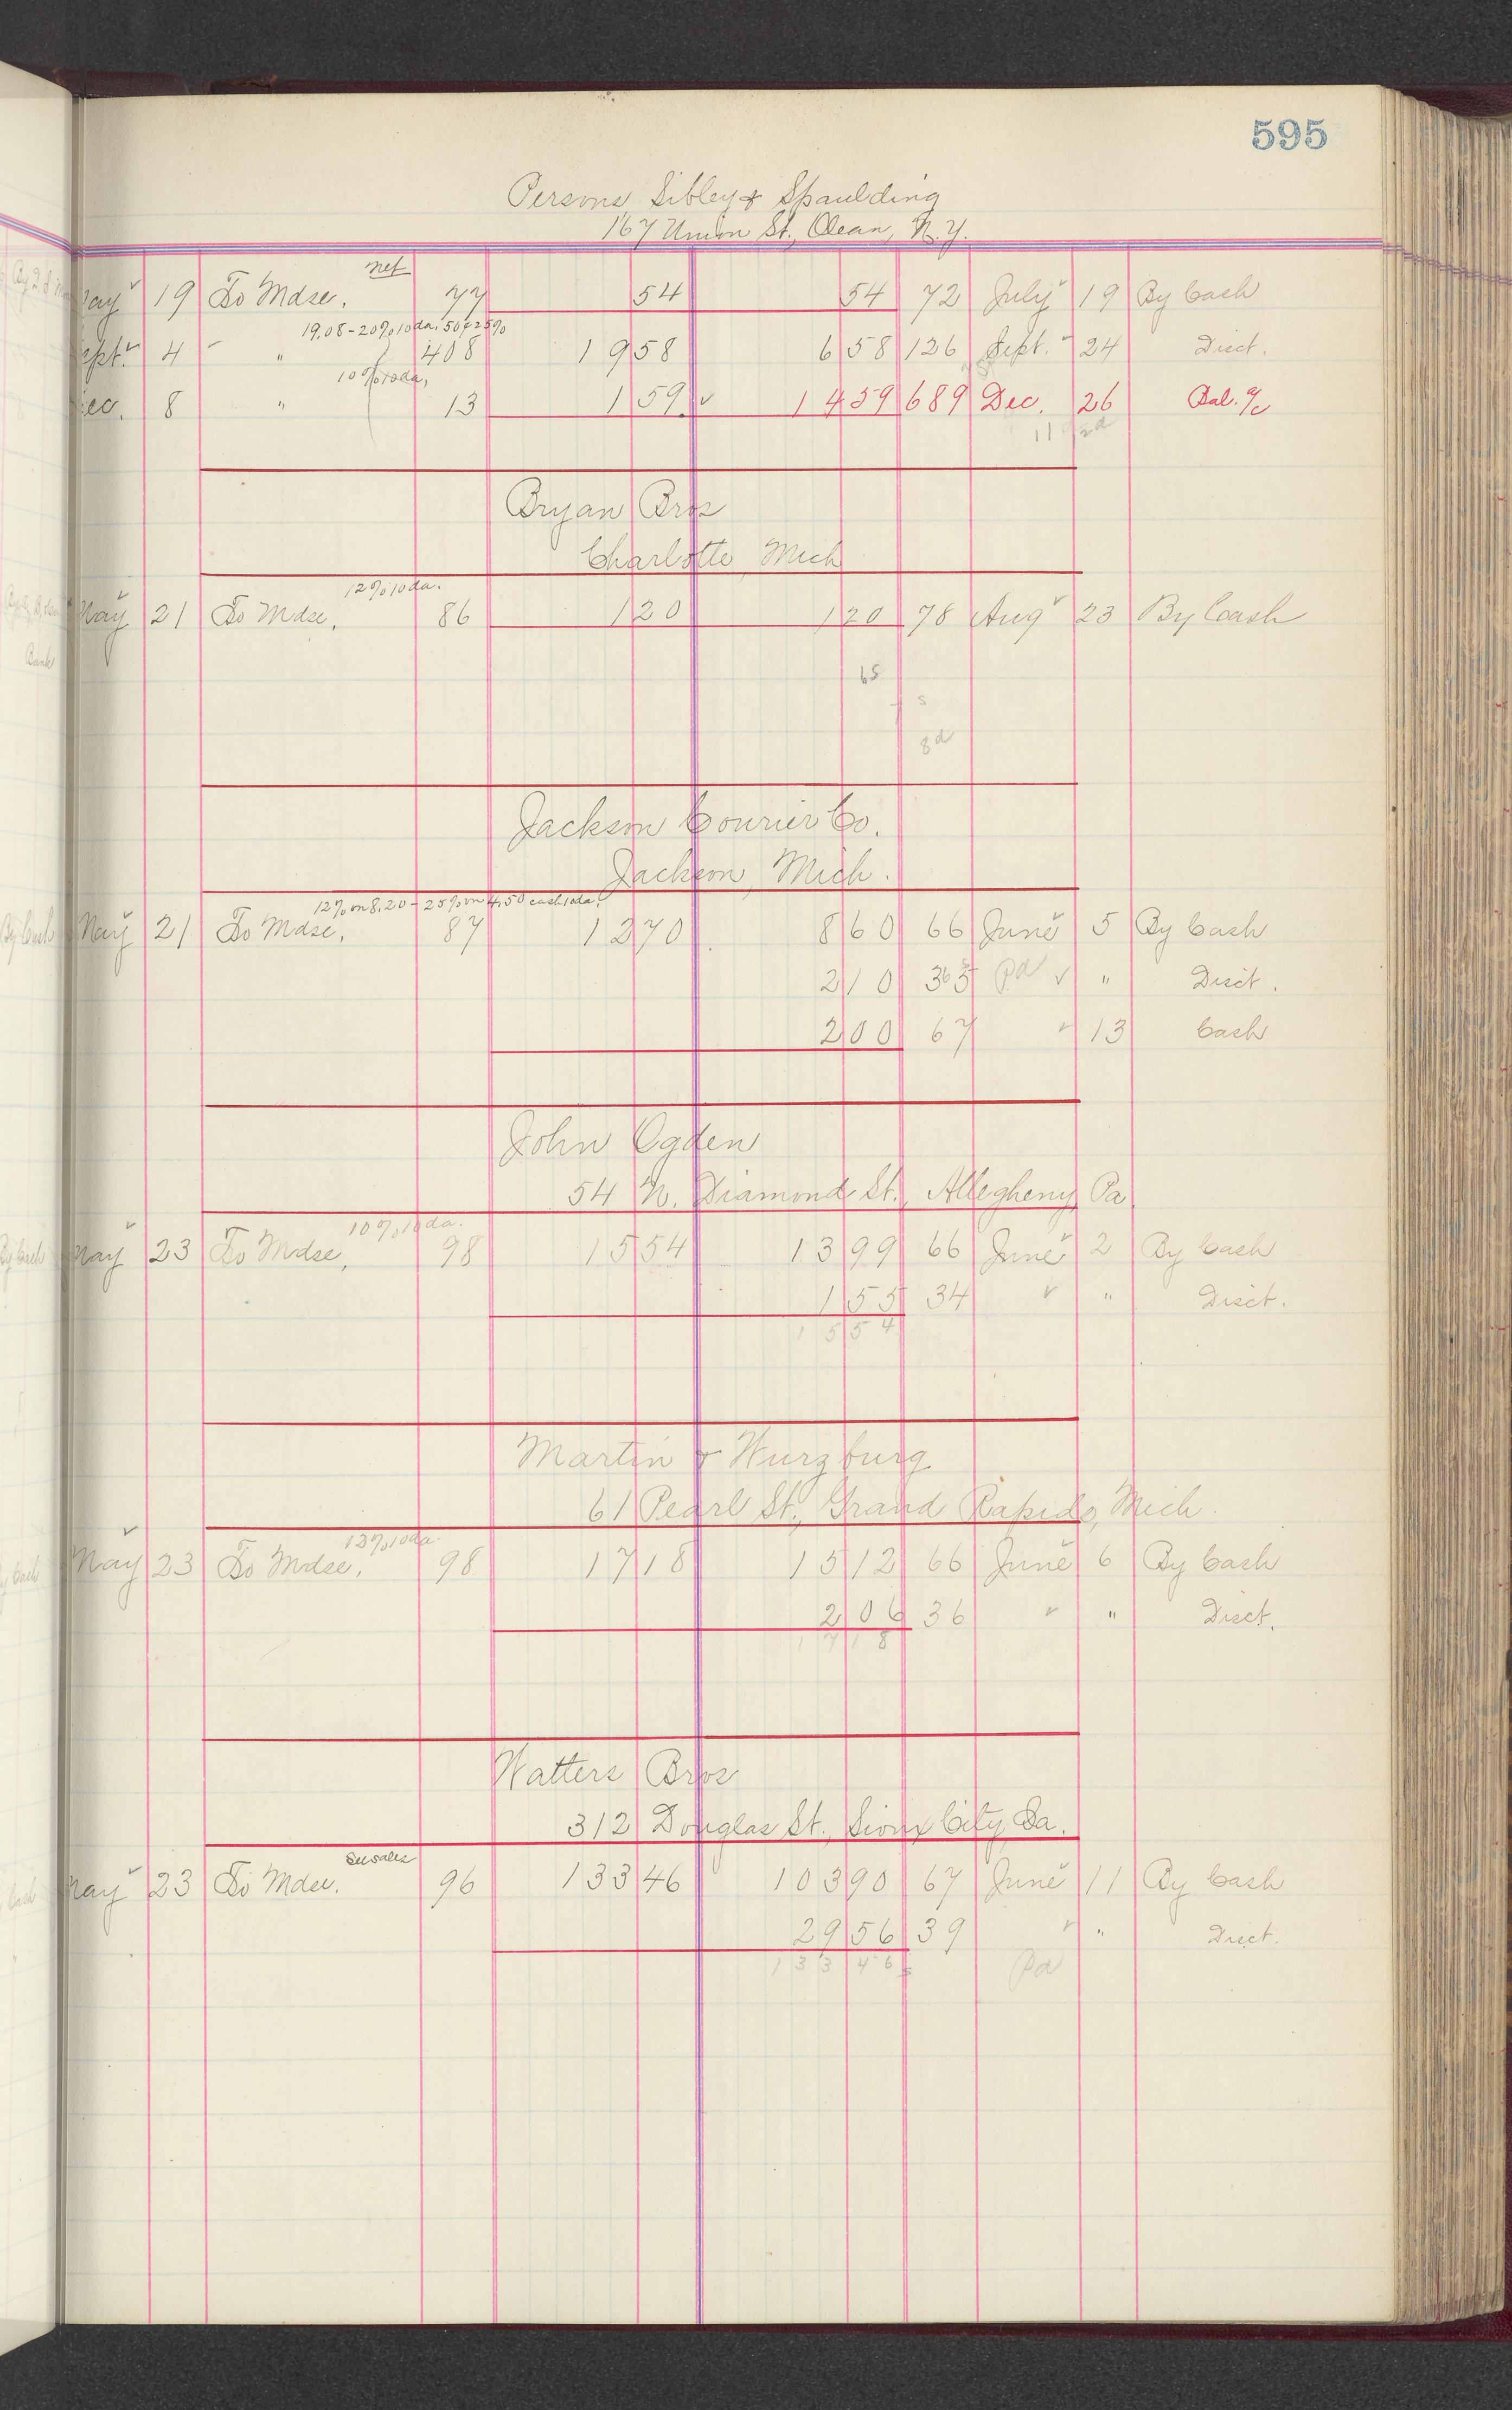 595
Persons Sibley & Spaulding
167 Union St., Olean, N.Y.
net
May 19 To Mdse. 77 54 54 72 July 19 By Cash
19.08-20% 10 da. 50¢ 25%
Sept. 4 " 408 19 58 6 58 126 Sept. 24 Disct.
10% 10 da.
Dec. 8 " 13 1 59 14 59 689 Dec. 26 Bal. a/c
Bryan Bros
Charlotte, Mich
12% 10 da.
May 21 To Mdse. 86 1 20 1 20 78 Aug 23 By Cash
65
s
8d
Jackson Courier Co.
Jackson, Mich.
12% on 8.20 - 25% on 4.50 cash 10 da.
May 21 To Mdse. 87 12 70 8 60 66 June 5 By Cash
2 10 Pd " Disct.
2 00 67 " 13 Cash
John Ogden
54 N. Diamond St., Allegheny Pa
10% 10 da.
May 23 To Mdse. 98 15 54 13 99 66 June 2 By Cash
1 55 34 " Disct.
15 54
Martin & Wurzburg
61 Pearl St., Grand Rapids, Mich.
12% 10 da
May 23 To Mdse. 98 17 18 15 12 66 June 6 By Cash
2 06 36 " Disct.
17 18
Watters Bros
312 Douglas St., Sioux City, Ia.
See sales
May 23 To Mdse. 96 133 46 103 90 67 June 11 By Cash
29 56 39 " Disct.
133 46 Pd